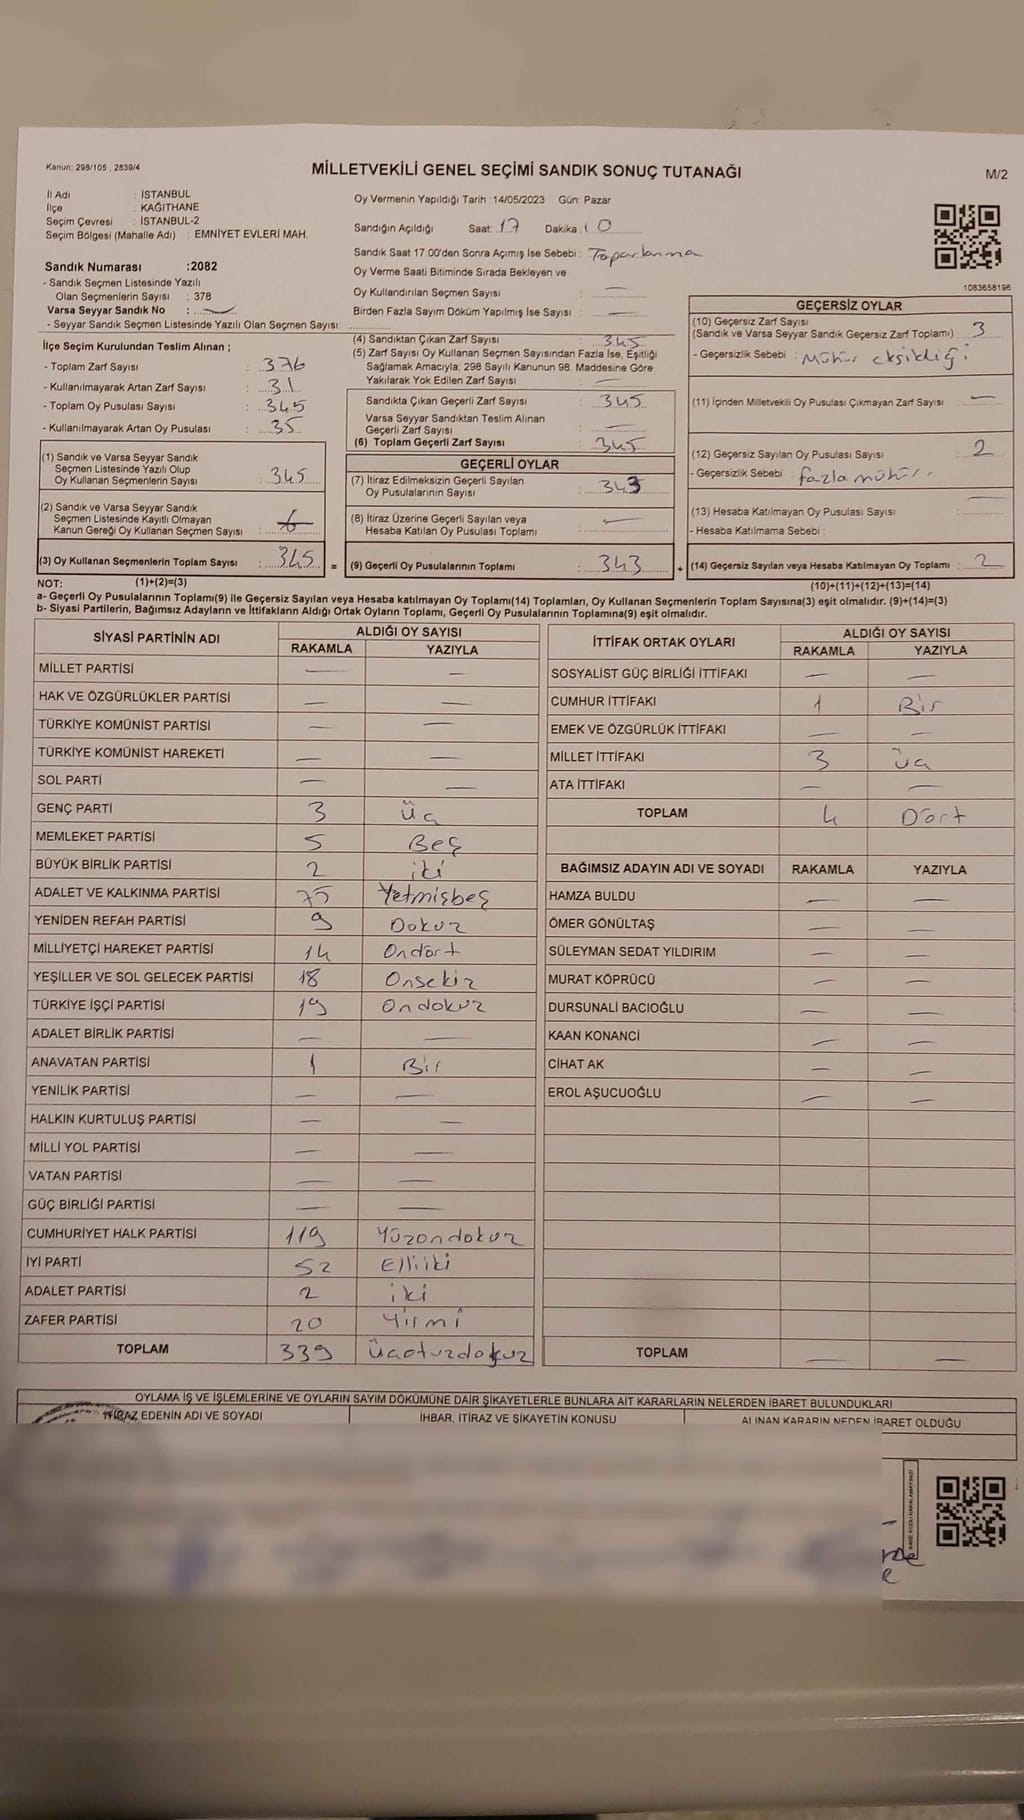 Kanun; 298/105 , 2839/4
MİLLETVEKİLİ GENEL SEÇİMİ SANDIK SONUÇ TUTANAĞI
M/2
İl Adı : İSTANBUL
İlçe : KAĞITHANE
Seçim Çevresi : İSTANBUL-2
Seçim Bölgesi (Mahalle Adı) : EMNİYET EVLERİ MAH.
Sandık Numarası :2082
- Sandık Seçmen Listesinde Yazılı
Olan Seçmenlerin Sayısı : 378
Varsa Seyyar Sandık No : —
- Seyyar Sandık Seçmen Listesinde Yazılı Olan Seçmen Sayısı:
Oy Vermenin Yapıldığı Tarih :14/05/2023 Gün: Pazar
Sandığın Açıldığı Saat: 17 Dakika: 10
Sandık Saat 17.00'den Sonra Açımış İse Sebebi : Toparlanma
Oy Verme Saati Bitiminde Sırada Bekleyen ve
Oy Kullandırılan Seçmen Sayısı : —
Birden Fazla Sayım Döküm Yapılmış İse Sayısı : —
1083658196
İlçe Seçim Kurulundan Teslim Alınan ;
- Toplam Zarf Sayısı : 376
- Kullanılmayarak Artan Zarf Sayısı : 31
- Toplam Oy Pusulası Sayısı : 345
- Kullanılmayarak Artan Oy Pusulası : 35
(1) Sandık ve Varsa Seyyar Sandık
Seçmen Listesinde Yazılı Olup
Oy Kullanan Seçmenlerin Sayısı : 345
(2) Sandık ve Varsa Seyyar Sandık
Seçmen Listesinde Kayıtlı Olmayan
Kanun Gereği Oy Kullanan Seçmen Sayısı :
(3) Oy Kullanan Seçmenlerin Toplam Sayısı : 345 =
(4) Sandıktan Çıkan Zarf Sayısı : 345
(5) Zarf Sayısı Oy Kullanan Seçmen Sayısından Fazla İse, Eşitliği
Sağlamak Amacıyla; 298 Sayılı Kanunun 98. Maddesine Göre
Yakılarak Yok Edilen Zarf Sayısı : —
Sandıkta Çıkan Geçerli Zarf Sayısı : 345
Varsa Seyyar Sandıktan Teslim Alınan
Geçerli Zarf Sayısı : —
(6) Toplam Geçerli Zarf Sayısı : 345
GEÇERLİ OYLAR
(7) İtiraz Edilmeksizin Geçerli Sayılan
Oy Pusulalarının Sayısı : 343
(8) İtiraz Üzerine Geçerli Sayılan veya
Hesaba Katılan Oy Pusulalarının Toplamı : —
(9) Geçerli Oy Pusulalarının Toplamı : 343 +
GEÇERSİZ OYLAR
(10) Geçersiz Zarf Sayısı
(Sandık ve Varsa Seyyar Sandık Geçersiz Zarf Toplamı) : 3
- Geçersizlik Sebebi : Mühür eksikliği
(11) İçinden Milletvekili Oy Pusulası Çıkmayan Zarf Sayısı : —
(12) Geçersiz Sayılan Oy Pusulası Sayısı : 2
- Geçersizlik Sebebi : fazla mühür.
(13) Hesaba Katılmayan Oy Pusulası Sayısı : —
- Hesaba Katılmama Sebebi :
(14) Geçersiz Sayılan veya Hesaba Katılmayan Oy Toplamı : 2
NOT: (1)+(2)=(3) (10)+(11)+(12)+(13)=(14)
a- Geçerli Oy Pusulalarının Toplamı(9) ile Geçersiz Sayılan veya Hesaba katılmayan Oy Toplamı(14) Toplamları, Oy Kullanan Seçmenlerin Toplam Sayısına(3) eşit olmalıdır. (9)+(14)=(3)
b- Siyasi Partilerin, Bağımsız Adayların ve İttifakların Aldığı Ortak Oyların Toplamı, Geçerli Oy Pusulalarının Toplamına(9) eşit olmalıdır.
SİYASİ PARTİNİN ADI ALDIĞI OY SAYISI
RAKAMLA YAZIYLA
MİLLET PARTİSİ — —
HAK VE ÖZGÜRLÜKLER PARTİSİ — —
TÜRKİYE KOMÜNİST PARTİSİ — —
TÜRKİYE KOMÜNİST HAREKETİ — —
SOL PARTİ — —
GENÇ PARTİ 3 Üç
MEMLEKET PARTİSİ 5 Beş
BÜYÜK BİRLİK PARTİSİ 2 iki
ADALET VE KALKINMA PARTİSİ 75 Yetmişbeş
YENİDEN REFAH PARTİSİ 9 Dokuz
MİLLİYETÇİ HAREKET PARTİSİ 14 Ondört
YEŞİLLER VE SOL GELECEK PARTİSİ 18 Onsekiz
TÜRKİYE İŞÇİ PARTİSİ 19 Ondokuz
ADALET BİRLİK PARTİSİ — —
ANAVATAN PARTİSİ 1 Bir
YENİLİK PARTİSİ — —
HALKIN KURTULUŞ PARTİSİ — —
MİLLİ YOL PARTİSİ — —
VATAN PARTİSİ — —
GÜÇ BİRLİĞİ PARTİSİ — —
CUMHURİYET HALK PARTİSİ 119 Yüzondokuz
İYİ PARTİ 52 Elliiki
ADALET PARTİSİ 2 iki
ZAFER PARTİSİ 20 Yirmi
TOPLAM 339 Üçotuzdokuz
İTTİFAK ORTAK OYLARI ALDIĞI OY SAYISI
RAKAMLA YAZIYLA
SOSYALİST GÜÇ BİRLİĞİ İTTİFAKI — —
CUMHUR İTTİFAKI 1 Bir
EMEK VE ÖZGÜRLÜK İTTİFAKI — —
MİLLET İTTİFAKI 3 üç
ATA İTTİFAKI — —
TOPLAM 4 Dört
BAĞIMSIZ ADAYIN ADI VE SOYADI RAKAMLA YAZIYLA
HAMZA BULDU — —
ÖMER GÖNÜLTAŞ — —
SÜLEYMAN SEDAT YILDIRIM — —
MURAT KÖPRÜCÜ — —
DURSUNALİ BACIOĞLU — —
KAAN KONANCİ — —
CİHAT AK — —
EROL AŞUCUOĞLU — —
TOPLAM — —
OYLAMA İŞ VE İŞLEMLERİNE VE OYLARIN SAYIM DÖKÜMÜNE DAİR ŞİKAYETLERLE BUNLARA AİT KARARLARIN NELERDEN İBARET BULUNDUKLARI
İTİRAZ EDENİN ADI VE SOYADI İHBAR, İTİRAZ VE ŞİKAYETİN KONUSU ALINAN KARARIN NEDEN İBARET OLDUĞU